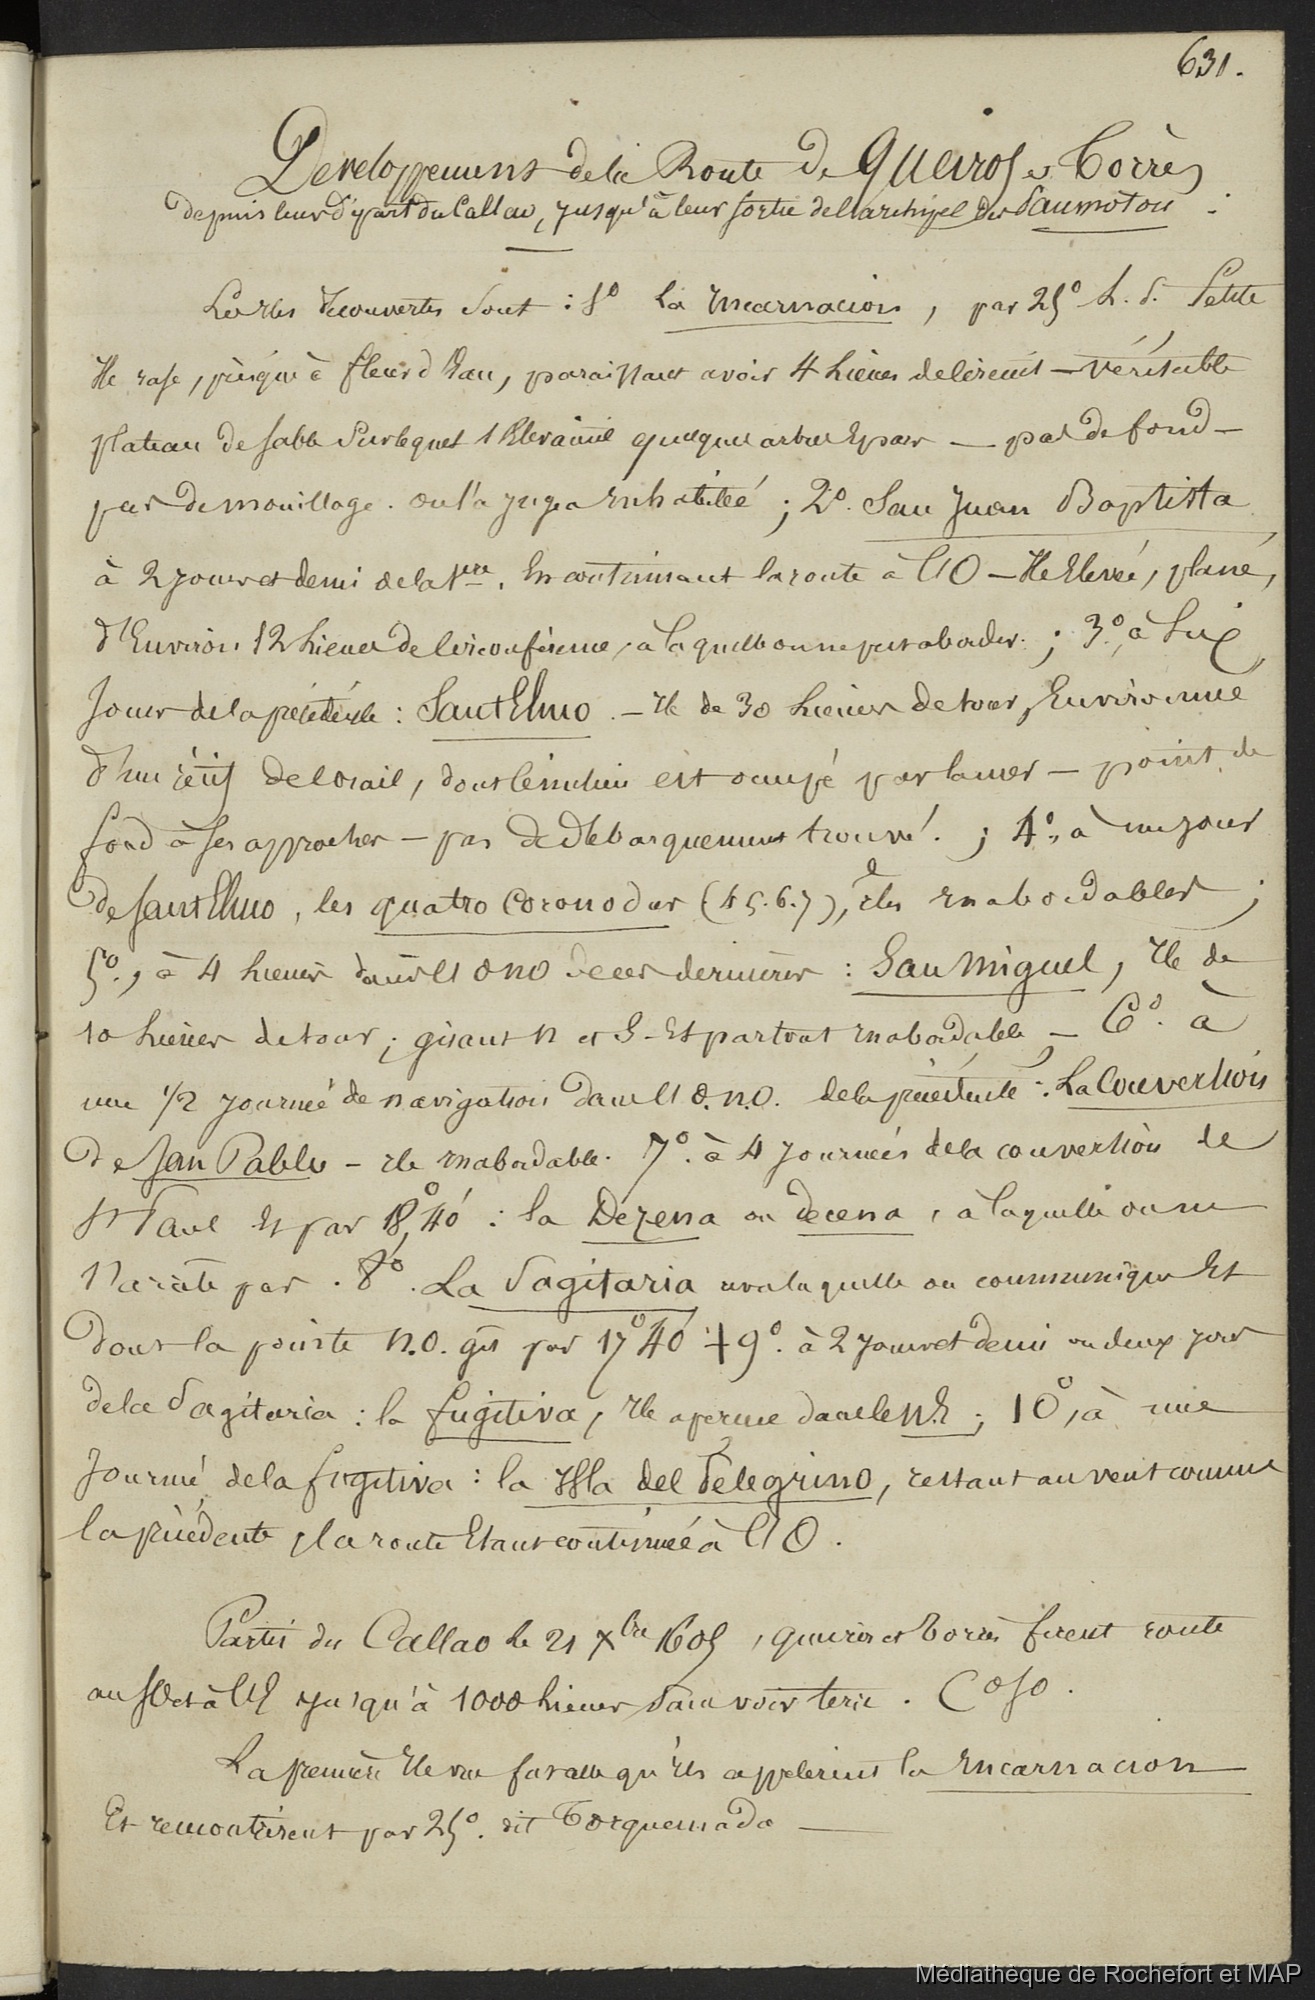 631.
Developpement de la Route de Queiros et Torrès
depuis leur départ du Callao, jusqu'à leur sortie de l'archipel des Paumotou :
Les Iles découvertes sont : 1º la Incarnacion, par 25º L. S. Petite
Ile rase, presque à fleur d'Eau, paraissant avoir 4 Lieues de Circuit — véritable
plateau de sable sur lequel s'Elevaient quelques arbres Epars — pas de fond —
pas de mouillage. on l'a jugea inhabitée ; 2º. San Juan Baptista
à 2 jours et demi de la 1ere. En continuant la route à l'O — Ile Elevée, plane,
d'Environ 12 Lieues de Circonférence, à laquelle on ne put aborder. ; 3º, à Six
Jours de la précédente : Sant Elmo. — Ile de 30 Lieues de tour, Environnée
d'un récif de Corail, dont le milieu est occupé par la mer — point de
fond à ses approches — pas de débarquement trouvé. ; 4º, à un jour
de Sant Elmo, les quatro Coronodas (4. 5. 6. 7), Iles inabordables ;
5º., à 4 Lieues dans l'O N O de ces dernières : San Miguel, Ile de
10 Lieues de tour ; gisant N et S - Et partout inabordable — 6º. à
une 1/2 journée de navigation dans l'O. N. O. de la précédente : La Convertion
de San Pablo — Ile inabordable. 7º. à 4 journées de la convertion de
St Paul Et par 18º,40' : la Dezena ou decena, à laquelle on ne
s'arrête pas. 8º. La Sagitaria avec laquelle on communique Et
dont la pointe N.O. gît par 17º 40' + 9º. à 2 jours et demi ou deux jours
de la Sagitaria : la fugitiva, Ile aperçue dans le N.E ; 10º, à une
Journée de la fugitiva : la Isla del Pelegrino, restant au vent comme
la précédente, la route Etant continuée à l'O.
Partis du Callao le 21 Xbre 1605, Queiros et Torrès firent route
au SO et à l'O jusqu'à 1000 Lieues sans voir terre.
La première Ile vue fut celle qu'ils appelèrent la Incarnacion
Et remontèrent par 25º. dit Torquemada —
Médiathèque de Rochefort et MAP